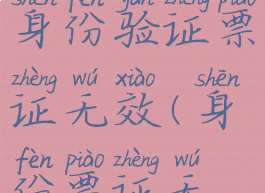 shēn fèn yàn zhèng piào
身份验证票
zhèng wú xiào shēn
证无效(身
fèn piào zhèng wú
份票证无